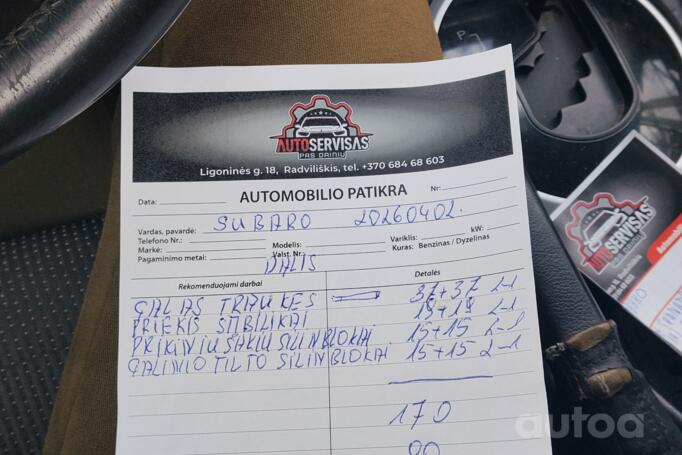 AUTOSERVISAS
PAS DAINIŲ
Ligoninės g. 18, Radviliškis, tel. +370 684 68 603
AUTOMOBILIO PATIKRA
Data: Nr:
Vardas, pavardė: SUBARO 20260402.
Telefono Nr.:
Markė: Modelis: Variklis: kW:
Pagaminimo metai: Valst. Nr.: Kuras: Benzinas / Dyzelinas
DALIS
Rekomenduojami darbai Detalės
GALAS TRAUKES 37+37 2-1
PRIEKIS STIBILIKAI 19+19 2-1
PRIKINIU SAKIU SILINBLOKAI 15+15 2-1
GALINIO TILTO SILINBLOKAI 15+15 2-1
170
90
AUTOSERVISAS
autoa